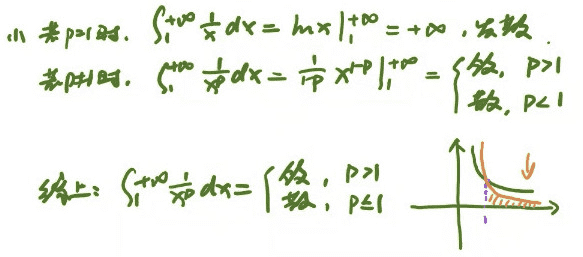 (1) 若p=1时. ∫₁^{+∞} 1/x dx = ln x |₁^{+∞} = +∞ . 发散.
若p≠1时. ∫₁^{+∞} 1/x^p dx = 1/(1-p) x^{1-p} |₁^{+∞} = { 敛, p>1
散, p<1
综上: ∫₁^{+∞} 1/x^p dx = { 敛, p>1
散, p≤1